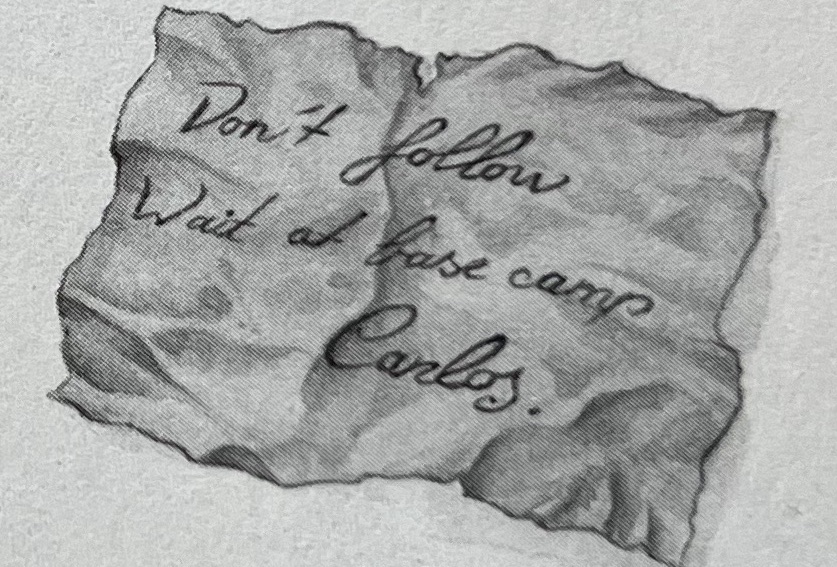 Don't follow
Wait at base camp
Carlos.